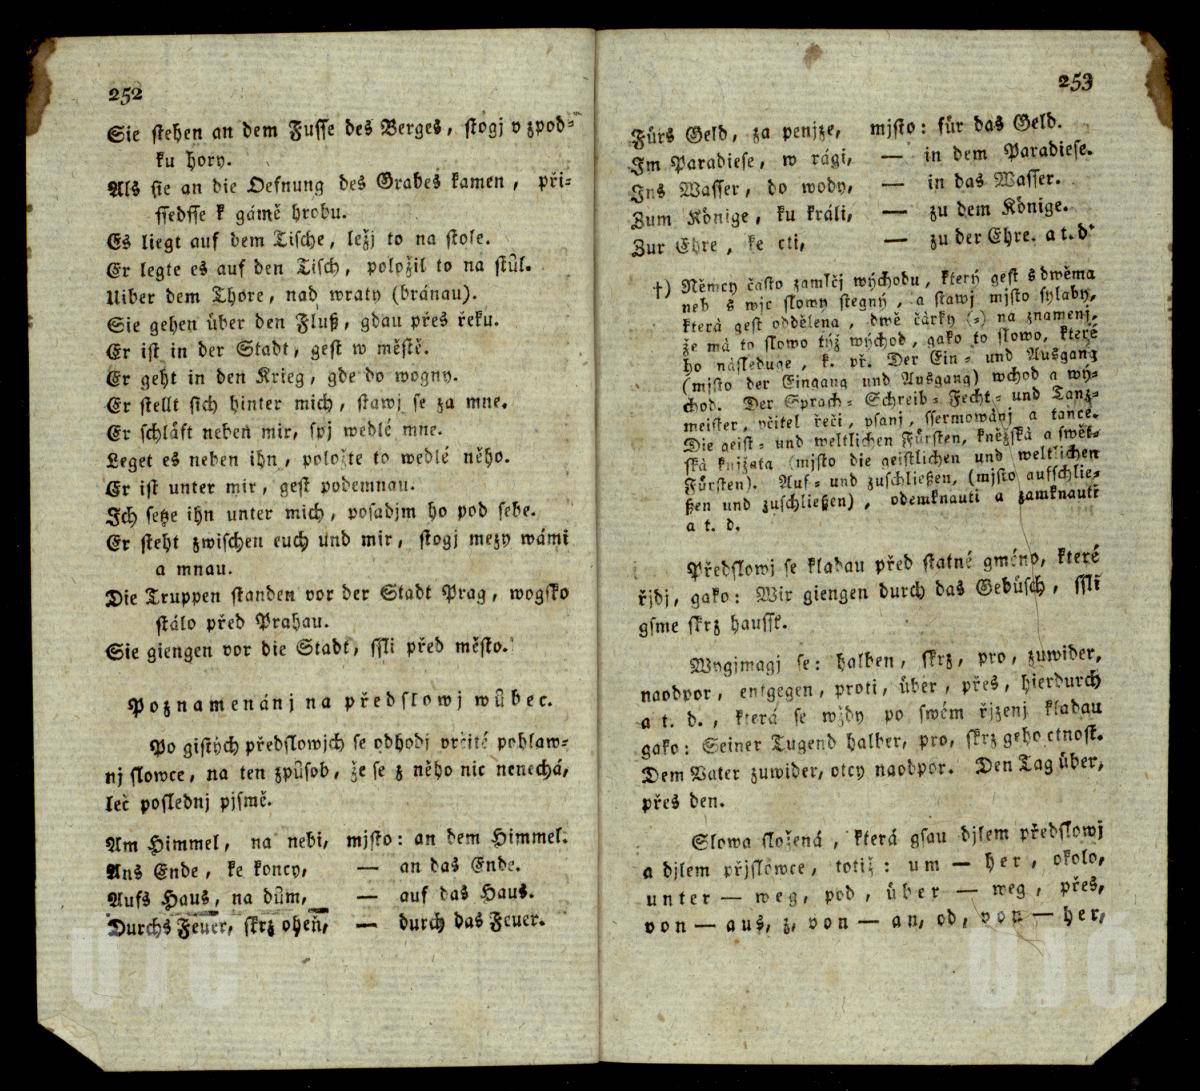 252
Sie stehen an dem Fusse des Berges, stogj v zpod=
ku hory.
Als sie an die Oefnung des Grabes kamen, při=
ssedsse k gámě hrobu.
Es liegt auf dem Tische, ležj to na stole.
Er legte es auf den Tisch, položil to na stůl.
Uiber dem Thore, nad wraty (bránau).
Sie gehen über den Fluß, gdau přes řeku.
Er ist in der Stadt, gest w městě.
Er geht in den Krieg, gde do wogny.
Er stellt sich hinter mich, stawj se za mne.
Er schläft neben mir, spj wedlé mne.
Leget es neben ihn, položte to wedlé něho.
Er ist unter mir, gest podemnau.
Ich setze ihn unter mich, posadjm ho pod sebe.
Er steht zwischen euch und mir, stogj mezy wámi
a mnau.
Die Truppen standen vor der Stadt Prag, wogsko
stálo před Prahau.
Sie giengen vor die Stadt, ssli před město.
Poznamenánj na předslowj wůbec.
Po gistých předslowjch se odhodj určité pohlaw=
nj slowce, na ten způsob, že se z něho nic nenechá,
leč poslednj pjsmě.
Am Himmel, na nebi, mjsto: an dem Himmel.
Ans Ende, ke koncy, — an das Ende.
Aufs Haus, na dům, — auf das Haus.
Durchs Feuer, skrz oheň, — durch das Feuer.
253
Fürs Geld, za penjze, mjsto: für das Geld.
Im Paradiese, w rági, — in dem Paradiese.
Ins Wasser, do wody, — in das Wasser.
Zum Könige, ku králi, — zu dem Könige.
Zur Ehre, ke cti, — zu der Ehre. a t. d.
†) Němcy často zamlčj wýchodu, který gest s dwěma
neb s wjc slowy stegný, a stawj mjsto sylaby,
která gest oddělena, dwě čárky (=) na znamenj,
že má to slowo týž wýchod, gako to slowo, které
ho následuge, k. př. Der Ein = und Ausgang
(mjsto der Eingang und Ausgang) wchod a wý=
chod. Der Sprach = Schreib = Fecht = und Tanz=
meister, včitel řeči, psanj, ssermowánj a tance.
Die geist = und weltlichen Fürsten, kněžská a swět=
ská knjžata (mjsto die geistlichen und weltlichen
Fürsten). Auf = und zuschließen, (mjsto aufschlie=
ßen und zuschließen), odemknauti a zamknauti
a t. d.
Předslowj se kladau před statné gméno, které
řjdj, gako: Wir giengen durch das Gebüsch, ssli
gsme skrz haussť.
Wygjmagj se: halben, skrz, pro, zuwider,
naodpor, entgegen, proti, über, přes, hierdurch
a t. d., která se wždy po swém řjzenj kladau
gako: Seiner Tugend halber, pro, skrz geho ctnost.
Dem Vater zuwider, otcy naodpor. Den Tag über,
přes den.
Slowa složená, která gsau djlem předslowj
a djlem přjslowce, totiž: um — her, okolo,
unter — weg, pod, über — weg, přes,
von — aus, z, von — an, od, von — her,
ÚJČ
ÚJČ